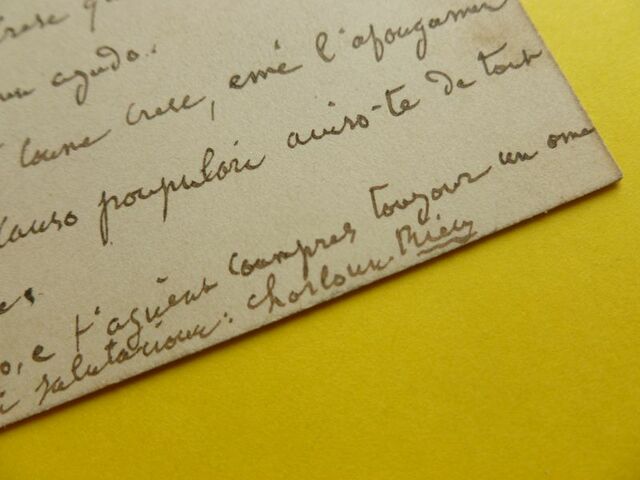 crese
un ajudo.
coume crese, emé l'afougamen
causo poupulàri aviso-te de tout
e t'aguènt coumpres toujour un ome
salutacioun: Charloun Riéu